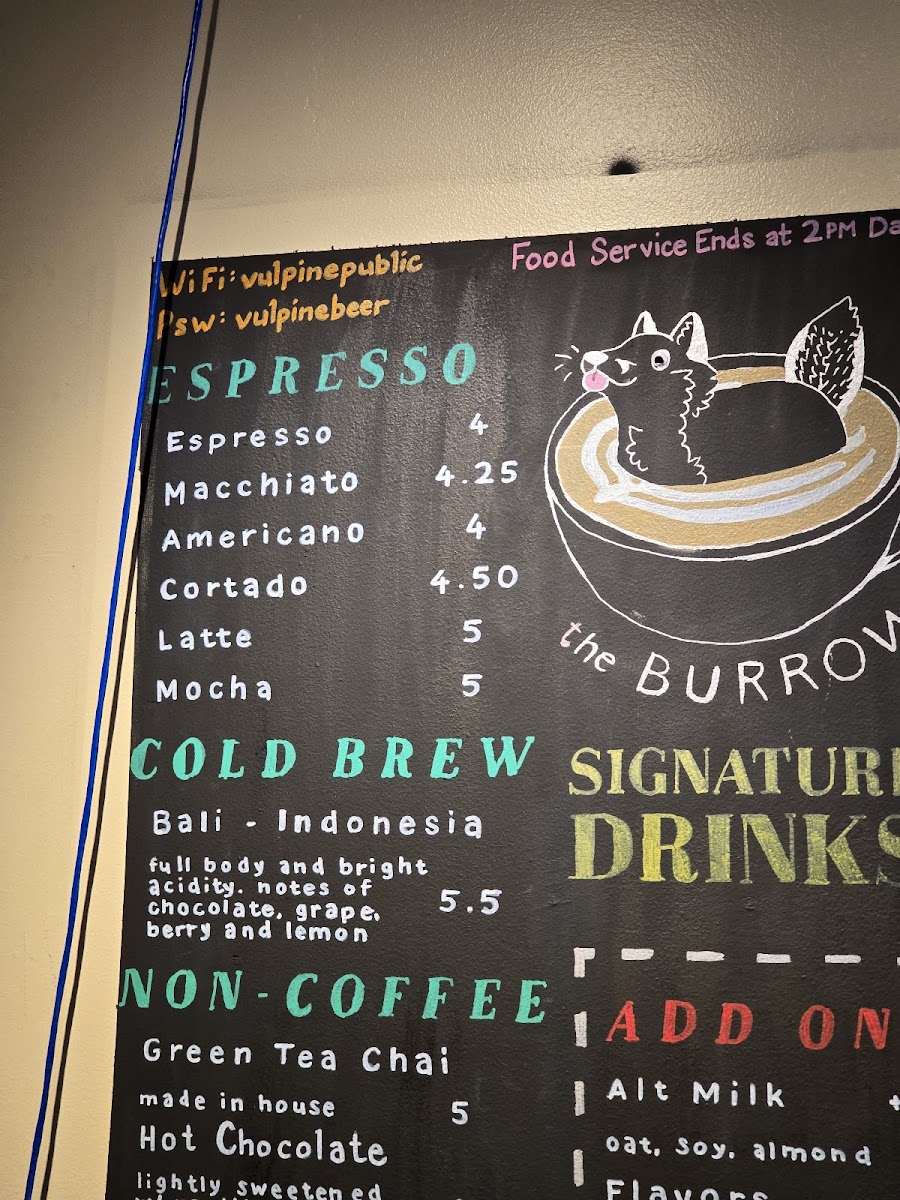 WiFi: vulpinepublic
Psw: vulpinebeer
Food Service Ends at 2PM
ESPRESSO
Espresso 4
Macchiato 4.25
Americano 4
Cortado 4.50
Latte 5
Mocha 5
COLD BREW
Bali - Indonesia
full body and bright
acidity. notes of
chocolate, grape,
berry and lemon
5.5
NON-COFFEE
Green Tea Chai
made in house 5
Hot Chocolate
lightly sweetened
the BURROW
SIGNATURE
DRINKS
ADD ON
Alt Milk +
oat, soy, almond
Flavors